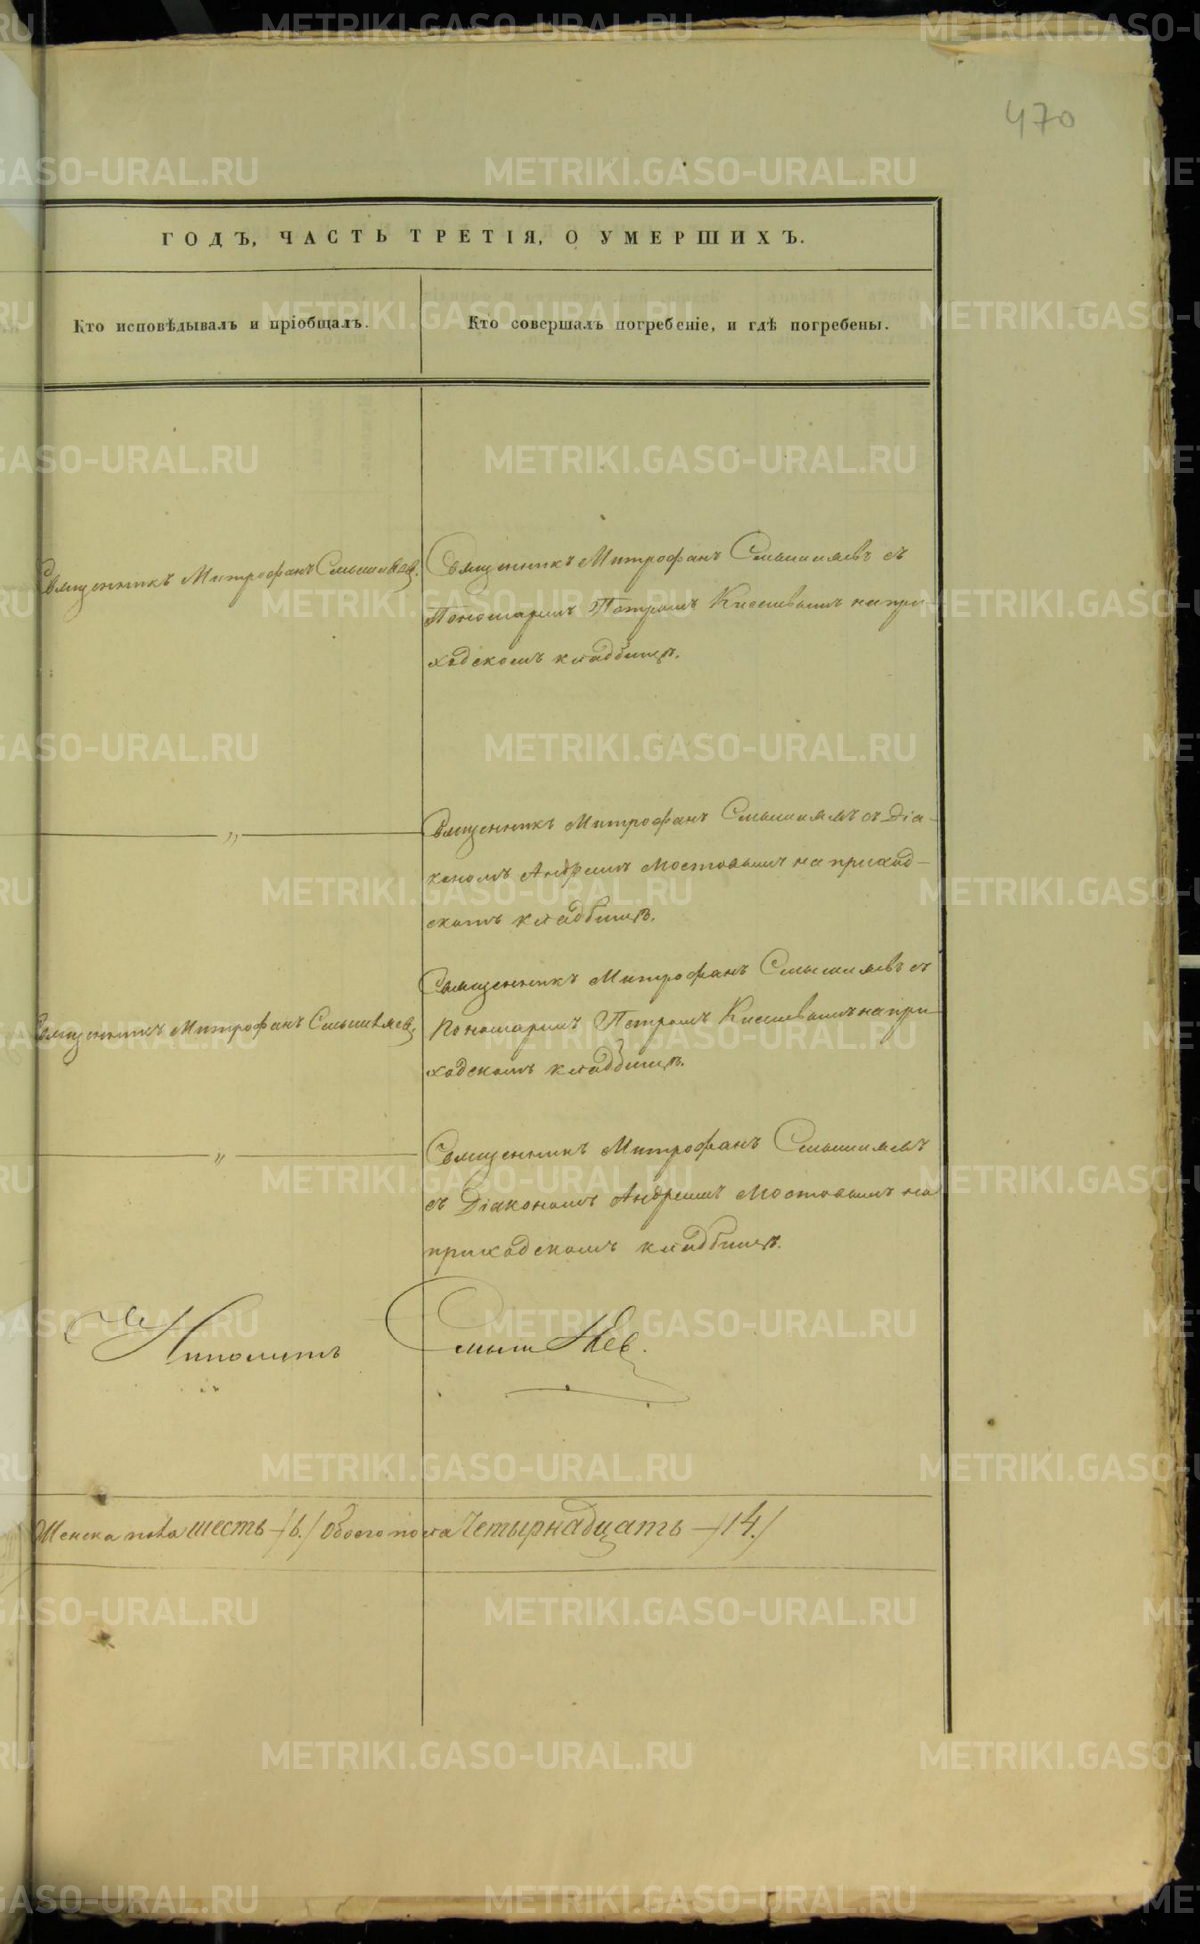 470
ГОДЪ, ЧАСТЬ ТРЕТІЯ, О УМЕРШИХЪ.
Кто исповѣдывалъ и пріобщалъ.
Кто совершалъ погребеніе, и гдѣ погребены.
Священникъ Митрофанъ Смышляев.
Священникъ Митрофанъ Смышляевъ съ
Пономаремъ Петромъ на при-
ходскомъ кладбищѣ.
— „ —
Священникъ Митрофанъ Смышляевъ съ Діа-
кономъ Андреемъ Мостовымъ на приход-
скомъ кладбищѣ.
Священникъ Митрофанъ Смышляев.
Священникъ Митрофанъ Смышляевъ съ
Пономаремъ Петромъ на при-
ходскомъ кладбищѣ.
— „ —
Священникъ Митрофанъ Смышляевъ
съ Діакономъ Андреемъ Мостовымъ на
приходскомъ кладбищѣ.
Смышляев.
Женска пола шесть /6./ обоего пола Четырнадцать — /14./
METRIKI.GASO-URAL.RU